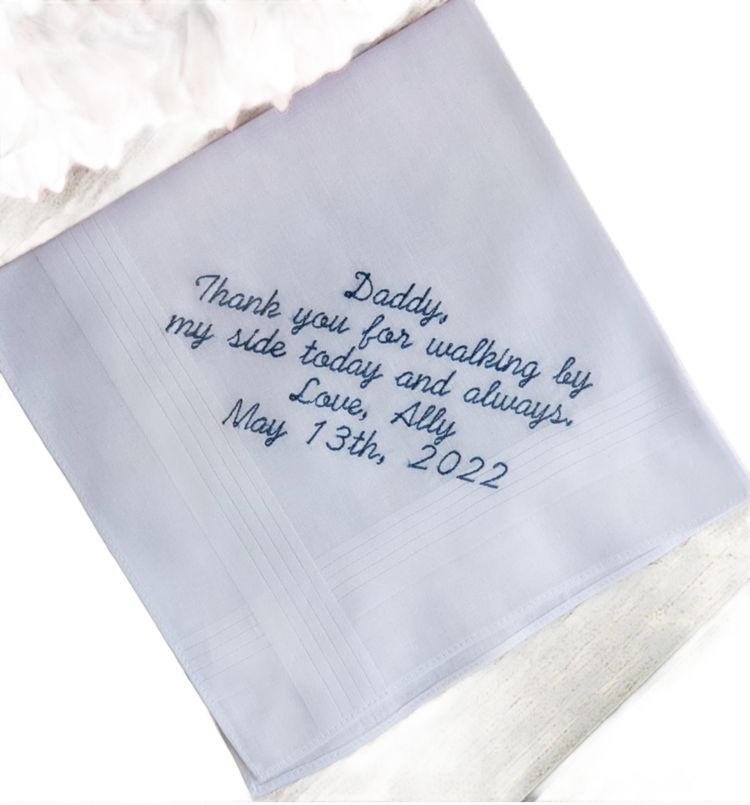 Daddy,
Thank you for walking by
my side today and always.
Love, Ally
May 13th, 2022